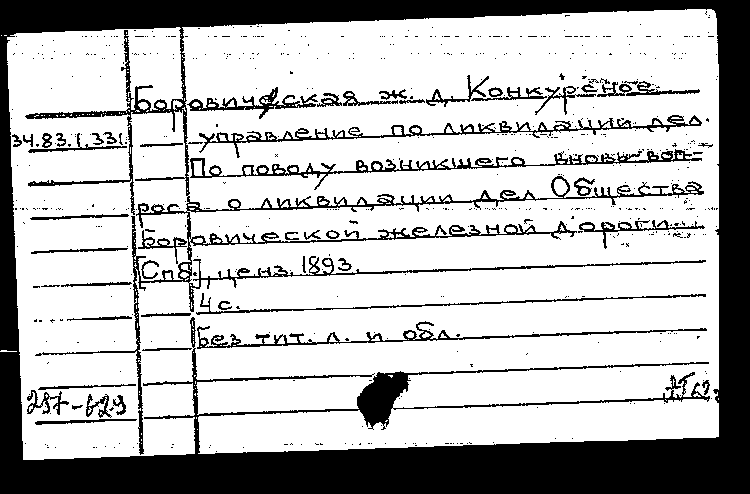 Боровическая ж. д. Конкурсное
34.83.1.331.
управление по ликвидации дел.
По поводу возникшего вновь воп-
роса о ликвидации дел Общества
Боровической железной дороги...
[Спб.], ценз. 1893.
4 с.
Без тит. л. и обл.